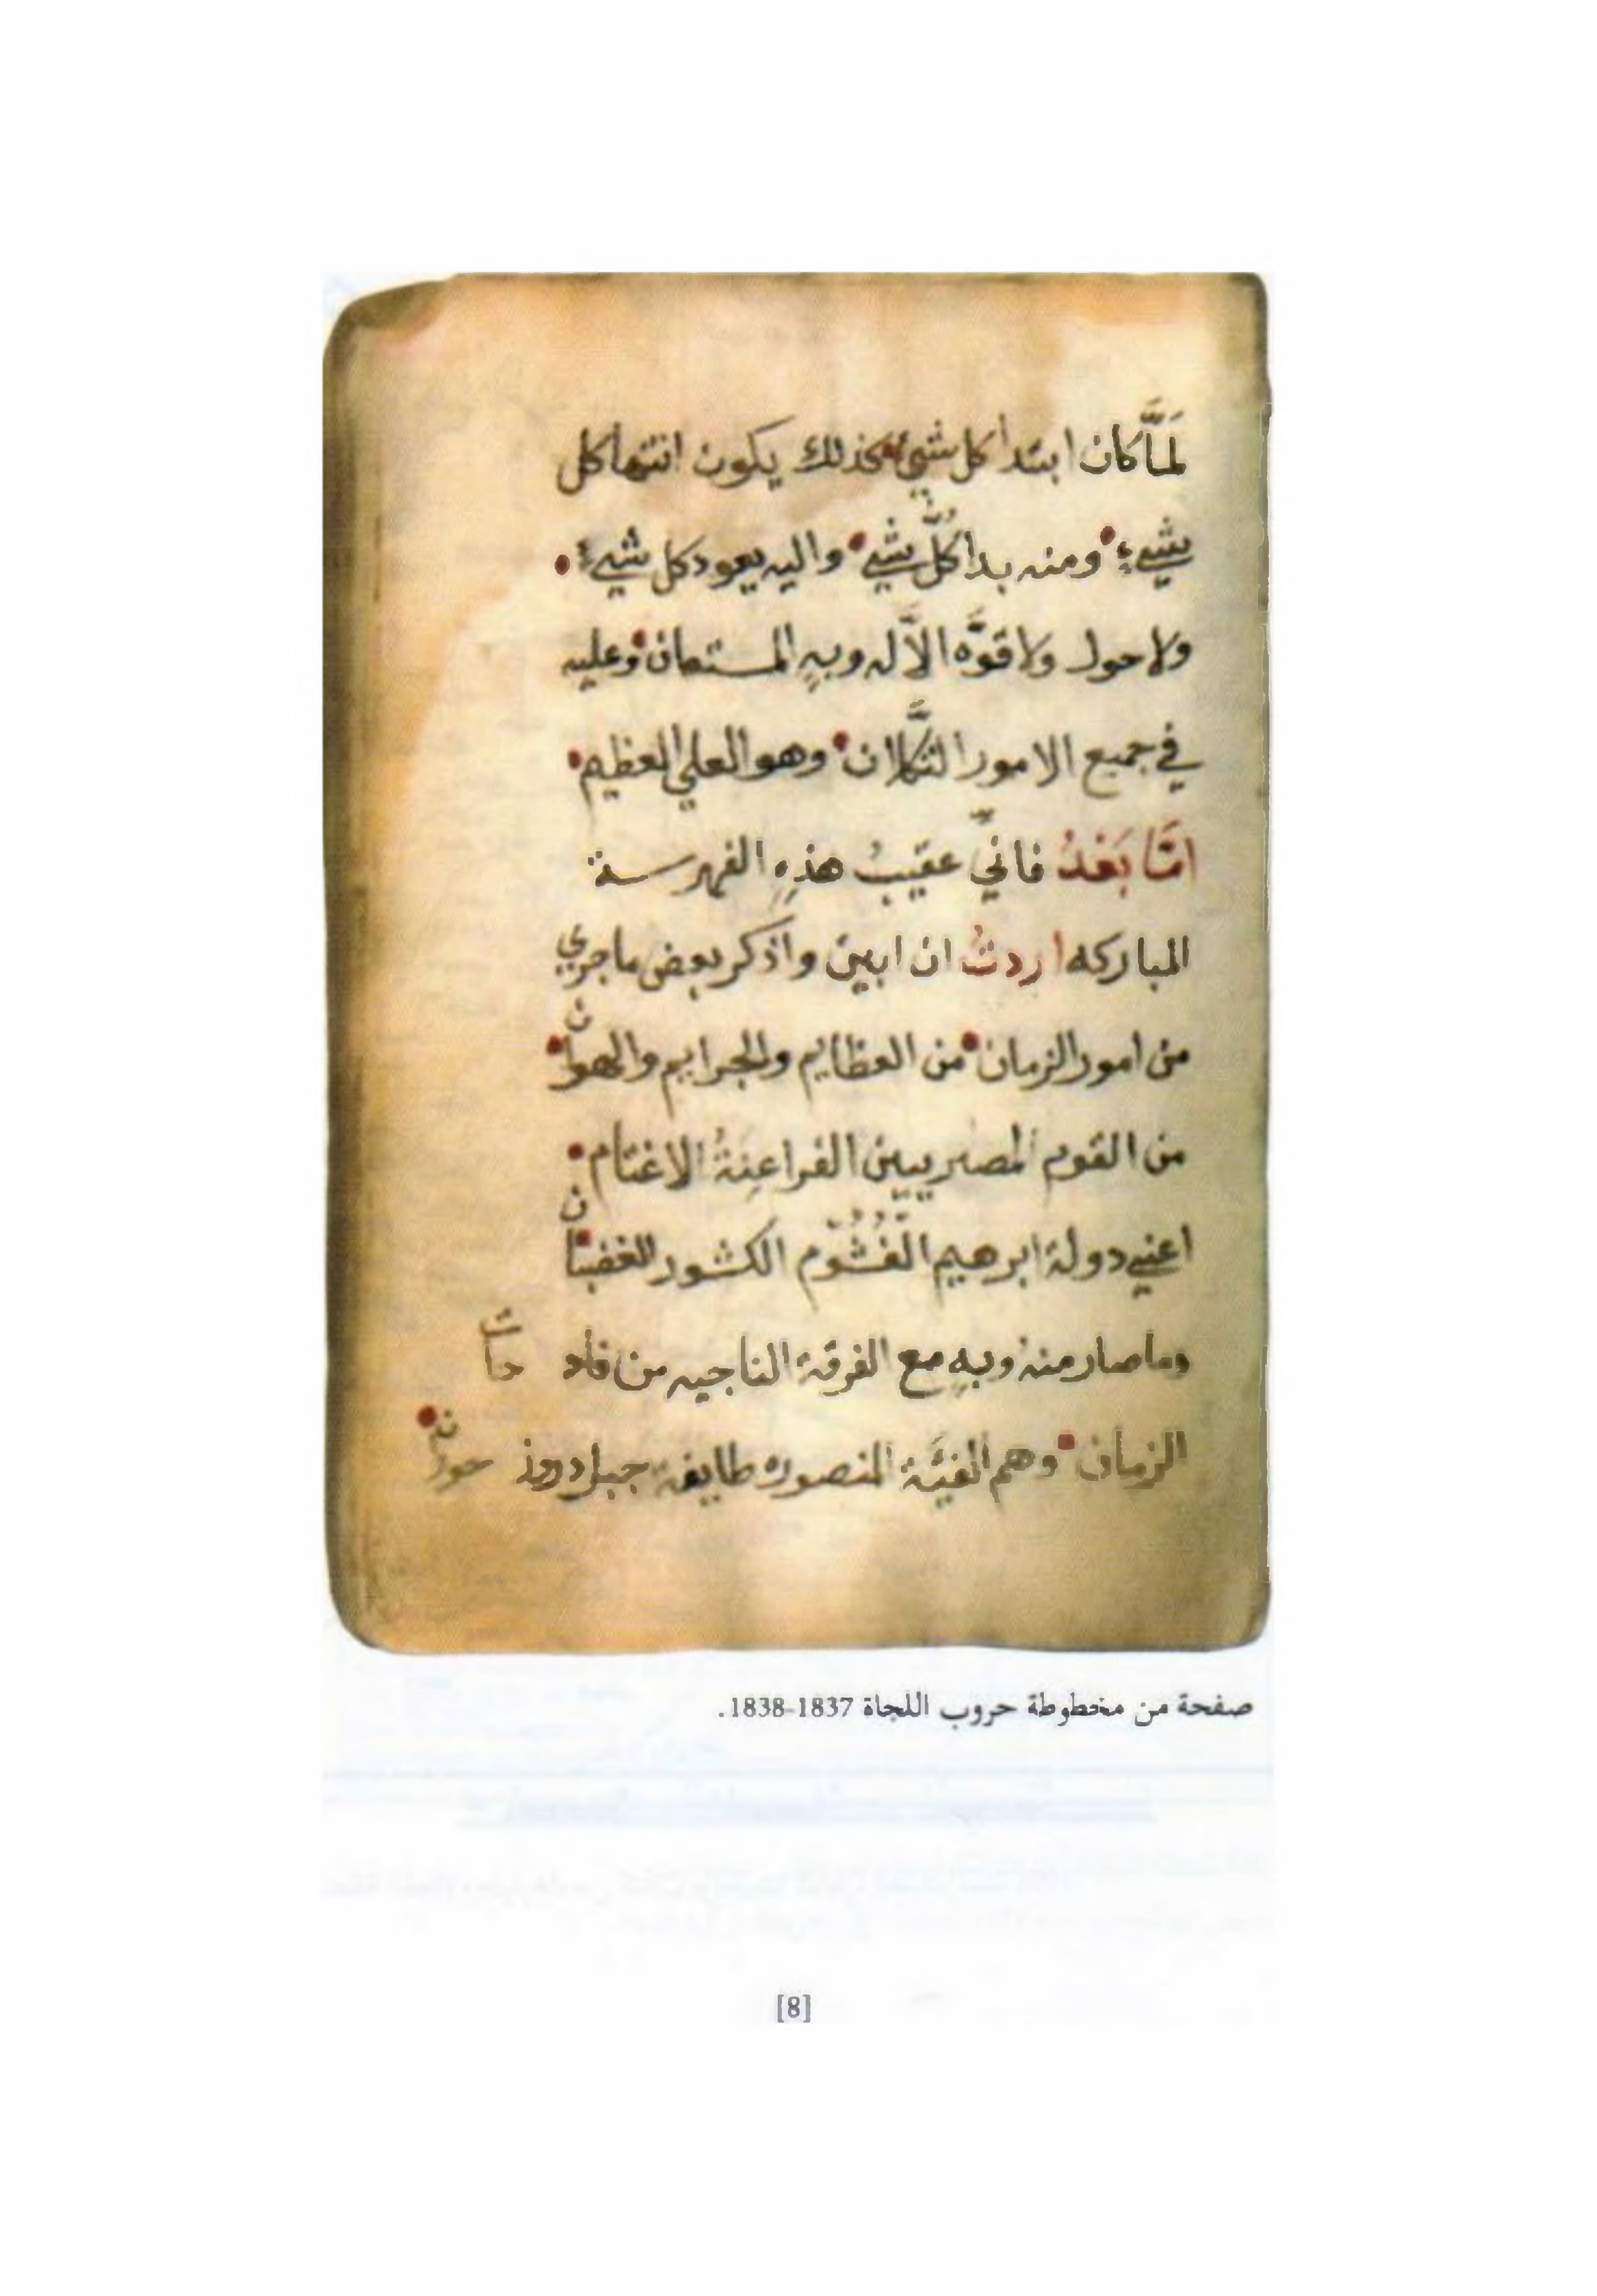 لمَّا كان ابتدا كل شيءٍ كذلك يكون انتها كل
شيءٍ ومنه بدا كُلّ شيءٍ واليه يعود كل شيءٍ
ولا حول ولا قوَّه الاَّ له وبهِ المستعان وعليه
في جميع الامور التكَّلان وهو العلي العظيم
امَّا بَعْدُ فانيّ عقيبُ هذهِ الفهرسة
المباركه اردتُ ان ابين واذكر بعض ما جري
من امور الزمان من العظايم والجرايم والهوان
من القوم المصريين الفراعنةُ الاغتام
اعني دولة ابرهيم الغُشُّوم الكشور الغضبان
وما صار منه وبهِ مع الفرقة الناجيه من
الزمان وهم الفيَّة المنصوره طايفة جبل دروز حوران
صفحة من مخطوطة حروب اللجاة 1837-1838.
[8]